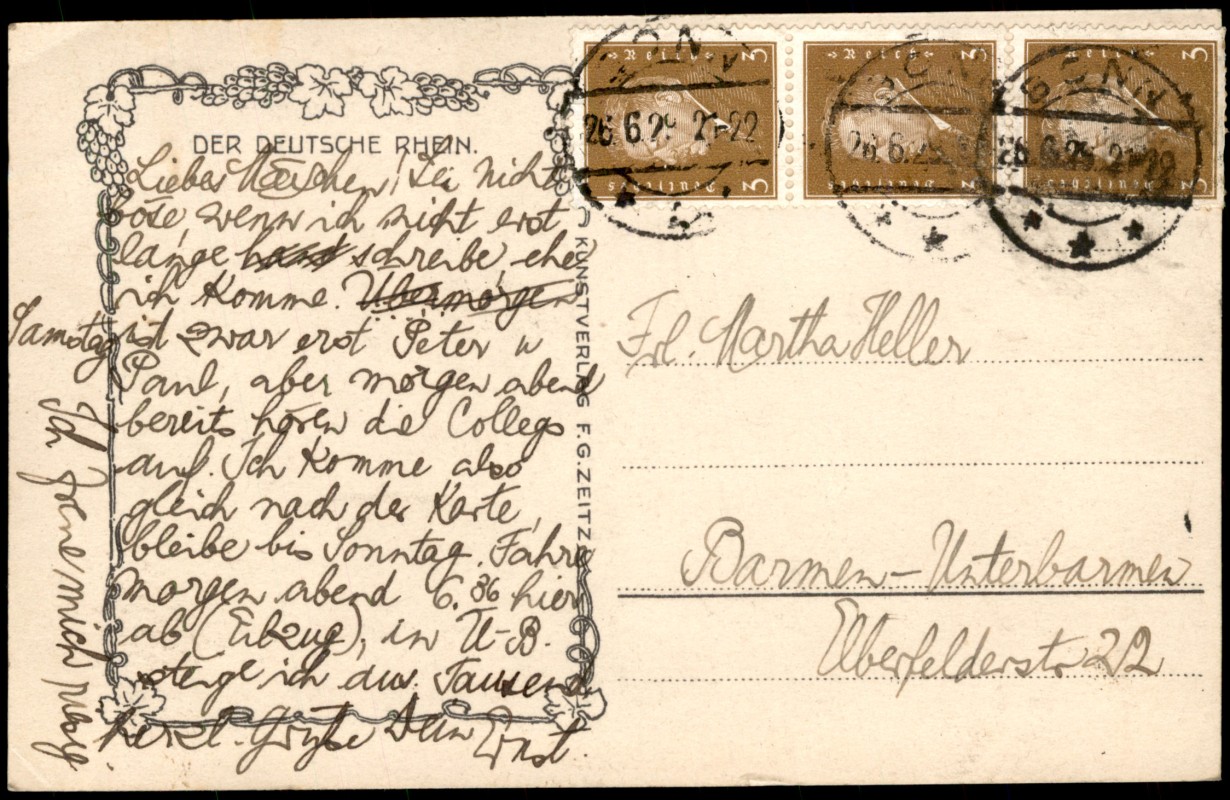 DER DEUTSCHE RHEIN.
Liebes Mäuschen! Sei nicht
böse, wenn ich nicht erst
lange schreibe, ehe
ich komme. Übermorgen
Samstag ist zwar erst Peter u
Paul, aber morgen abend
bereits hören die Collegs
auf. Ich komme also
gleich nach der Karte,
bleibe bis Sonntag. Fahre
morgen abend 6.36 hier
ab (Eilzug), in U-B.
steige ich aus. Tausend
herzl. Grüße Dein Ernst.
Ich freue mich
KUNSTVERLAG F.G.ZEITZ
Deutsches Reich
3 3
BONN
26.6.29 21-22
Deutsches Reich
3 3
BONN
26.6.29
Deutsches Reich
3 3
BONN
26.6.29 21-22
Frl. Martha Heller
Barmen-Unterbarmen
Elberfelderstr 22